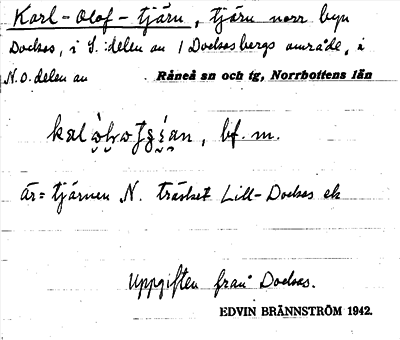 Karl-Olof-tjärn, tjärn norr byn
Dockas, i S. delen av / Dockasbergs område, i
N.O. delen av Råneå sn och tg, Norrbottens län
bf. m.
är = tjärnen N. träsket Lill-Dockas ek
Uppgiften från Dockas.
EDVIN BRÄNNSTRÖM 1942.